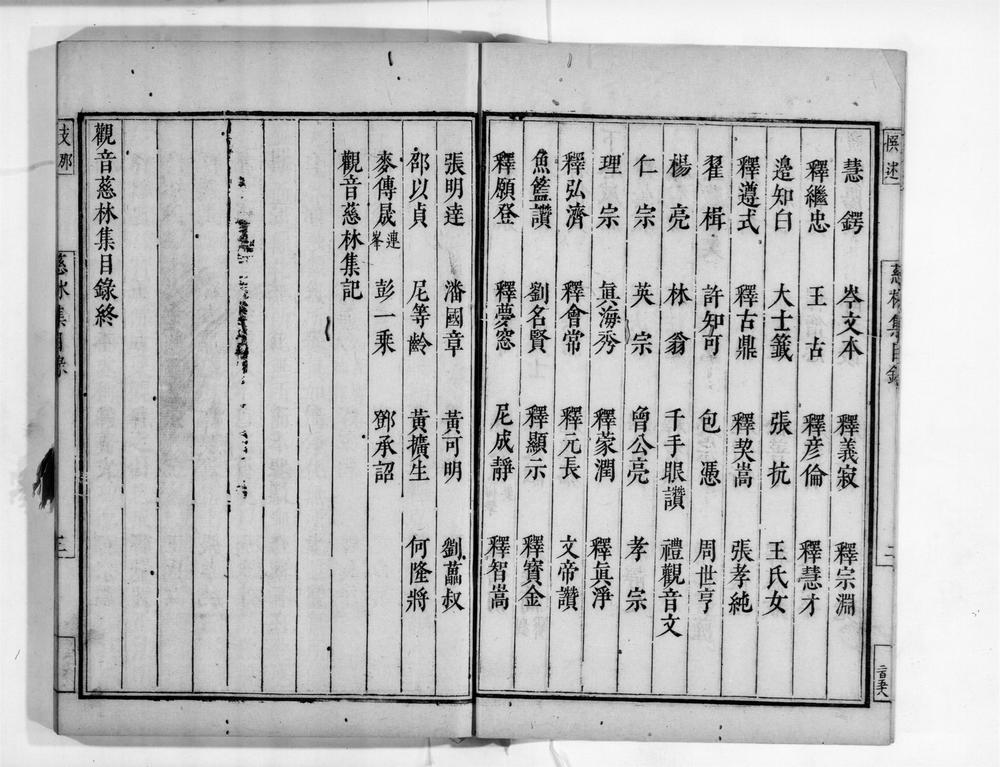 撰述
慈林集目錄
二
二百五十八
慧鍔　岑文本　釋義寂　釋宗淵
釋繼忠　王古　釋彦倫　釋慧才
邉知白　大士籤　張抗　王氏女
釋遵式　釋古鼎　釋契嵩　張孝純
翟楫　許知可　包憑　周世亨
楊亮　林翁　千手眼讚　禮觀音文
仁宗　英宗　曾公亮　孝宗
理宗　眞海秀　釋蒙潤　釋眞淨
釋弘濟　釋會常　釋元長　文帝讚
魚籃讚　劉名賢　釋顯示　釋寶金
釋願登　釋夢窓　尼成靜　釋智嵩
張明達　潘國章　黃可明　劉藟叔
邵以貞　尼等齡　黃擴生　何隆將
麥傳晟連峯　彭一乘　鄧承詔
觀音慈林集記
觀音慈林集目錄終
支那
慈林集目錄
三